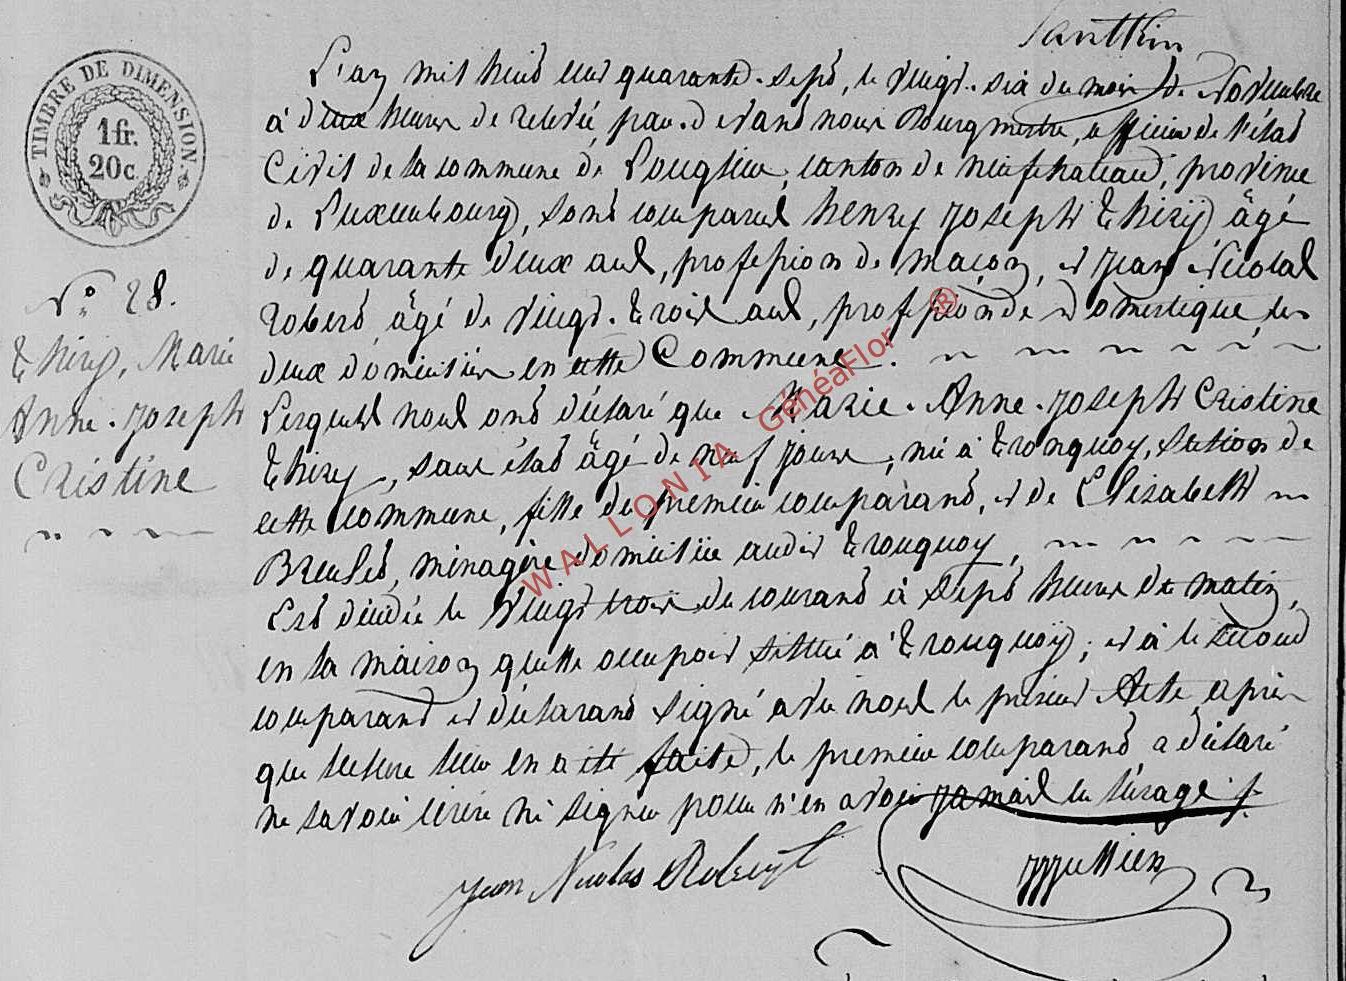 TIMBRE DE DIMENSION
1 fr.
20 c.
L'an mil huit cent quarante-sept, le vingt-six du mois de Novembre
à deux heures de relevée, par-devant nous Bourgmestre, officier de l'état
Civil de la commune de Longlier, canton de neufchateau, province
de Luxembourg, sont comparus Henry Joseph Thiry âgé
de quarante deux ans, profession de maçon, et Jean Nicolas
Robert âgé de vingt-trois ans, profession de domestique, les
deux domiciliés en cette Commune.
Lesquels nous ont déclaré que Marie-Anne-Joseph Cristine
Thiry, sans état âgé de neuf jours, né à Tronquoy, section de
cette commune, fille du premier comparant, et de Elizabeth
ménagère domiciliée audit Tronquoy,
Est décédée le vingt trois du courant à sept heures du matin,
en la maison qu'elle occupoit située à Tronquoy; et à le second
comparant et déclarant signé avec nous le présent Acte, après
que lecture leur en a été faite, le premier comparant, a déclaré
ne savoir écrire ni signer pour n'en avoir jamais eu l'usage.
Jean Nicolas Robert
N° 28.
Thiry, Marie
Anne-Joseph
Cristine
WALLONIA GénéaFlor ®